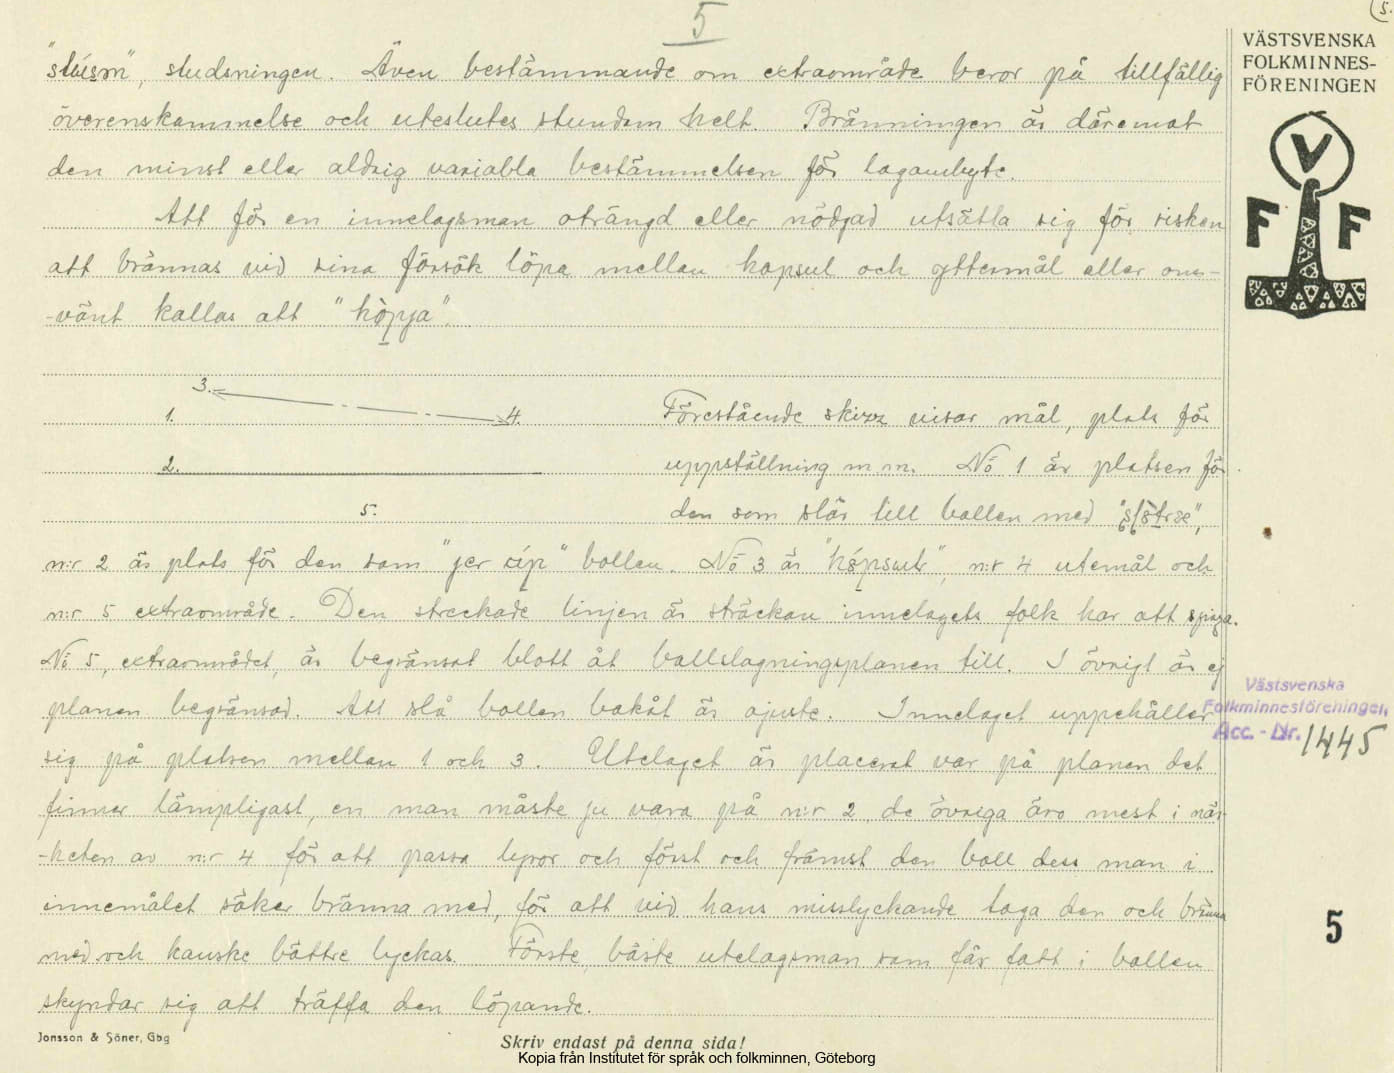 5
5.
"stúsm", studsningen. Även bestämmande om extraområde beror på tillfällig
överenskommelse och uteslutes stundom helt. Bränningen är däremot
den minst eller aldrig variabla bestämmelsen för lagombyte.
Att för en innelagsman oträngd eller nödgad utsätta sig för risken
att brännas vid sina försök löpa mellan kopsul och yttermål eller om-
-vänt kallas att "köpja".
3.
1. 4.
2.
5.
Förestående skizz visar mål, plats för
uppställning m.m. No 1 är platsen för
den som slår till bollen med
n:r 2 är plats för den som "jer úp" bollen. No 3 är n:r 4 utemål och
n:r 5 extraområde. Den streckade linjen är sträckan innelagets folk har att springa.
No 5, extraområdet, är begränsat blott åt bollslagningsplanen till. I övrigt är ej
planen begränsad. Att slå bollen bakåt är ojuste. Innelaget uppehåller
sig på platsen mellan 1 och 3. Utelaget är placerat var på planen det
finner lämpligast, en man måste ju vara på n:r 2 de övriga äro mest i när-
-heten av n:r 4 för att passa lyror och först och främst den boll dess man i
innemålet söker bränna med, för att vid hans misslyckande taga den och bränna
med och kanske bättre lyckas. Förste, bäste utelagsman som får fatt i bollen
skyndar sig att träffa den löpande.
VÄSTSVENSKA
FOLKMINNES-
FÖRENINGEN
V
F F
Västsvenska
Folkminnesföreningen
Acc. - Nr. 1445
5
Jonsson & Söner, Gbg
Skriv endast på denna sida!
Kopia från Institutet för språk och folkminnen, Göteborg